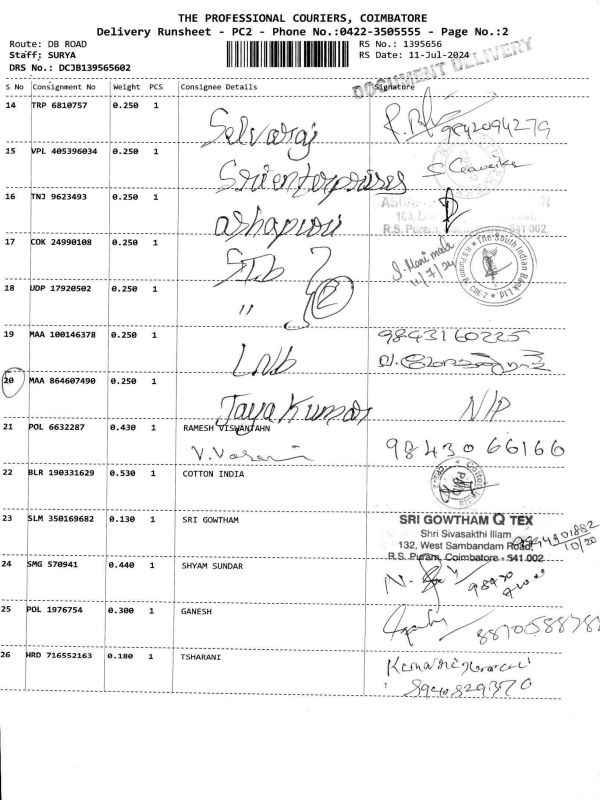 THE PROFESSIONAL COURIERS, COIMBATORE
Delivery Runsheet - PC2 - Phone No.:0422-3505555 - Page No.:2
Route: DB ROAD
RS No.: 1395656
Staff: SURYA
RS Date: 11-Jul-2024
DRS No.: DCJB139565602
DOCUMENT DELIVERY
S No Consignment No Weight PCS Consignee Details Signature
14 TRP 6810757 0.250 1 Selvaraj 9842094279
15 VPL 405396034 0.250 1 Sri enterprises
16 TNJ 9623493 0.250 1 ashapuri
R.S. Puram, Coimbatore - 641 002
17 COK 24990108 0.250 1 STb
11/7/24
The South Indian Bank Ltd
18 UDP 17920502 0.250 1 " 2
19 MAA 100146378 0.250 1 LNb 9843160225
20 MAA 864607490 0.250 1 Jaya Kumar N/P
21 POL 6632287 0.430 1 RAMESH VISWANTAHN
9843066166
22 BLR 190331629 0.530 1 COTTON INDIA
23 SLM 350169682 0.130 1 SRI GOWTHAM
SRI GOWTHAM Q TEX
Shri Sivasakthi Illam
132, West Sambandam Road,
R.S. Puram, Coimbatore - 641 002
10/20
24 SMG 570941 0.440 1 SHYAM SUNDAR
25 POL 1976754 0.300 1 GANESH
26 HRD 716552163 0.180 1 TSHARANI
8940829370